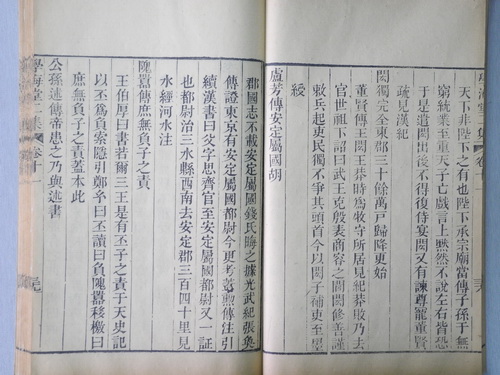 天下非陛下之有也陛下承宗廟當傳子孫于無
窮統業至重天子亡戲言上默然不說左右皆恐
于是遣閎出後不得復侍宴閎又有諫尊寵董賢
疏見漢紀
閎獨完全東郡三十餘萬戶歸降更始
董賢傳王閎王莽時爲牧守所居見紀莽敗乃去
官世祖下詔曰武王克殷表商容之閭閎修善謹
敕兵起吏民獨不爭其頭首今以閎子補吏至
綬
盧芳傳安定屬國胡
郡國志不載安定屬國錢氏晦之據光武紀張奐
傳證東京有安定屬國都尉今更考蓋勳傳注引
續漢書曰父字思齊官至安定屬國都尉又一証
也都尉治三水縣西南去安定郡三百四十里見
水經河水注
隗囂傳庶無負子之責
王伯厚曰書若爾三王是有丕子之責于天史記
以丕爲負索隱引鄭玄曰丕讀曰負隗囂移檄曰
庶無負子之責蓋本此
公孫述傳帝患之乃與述書
學海堂二集 卷十一